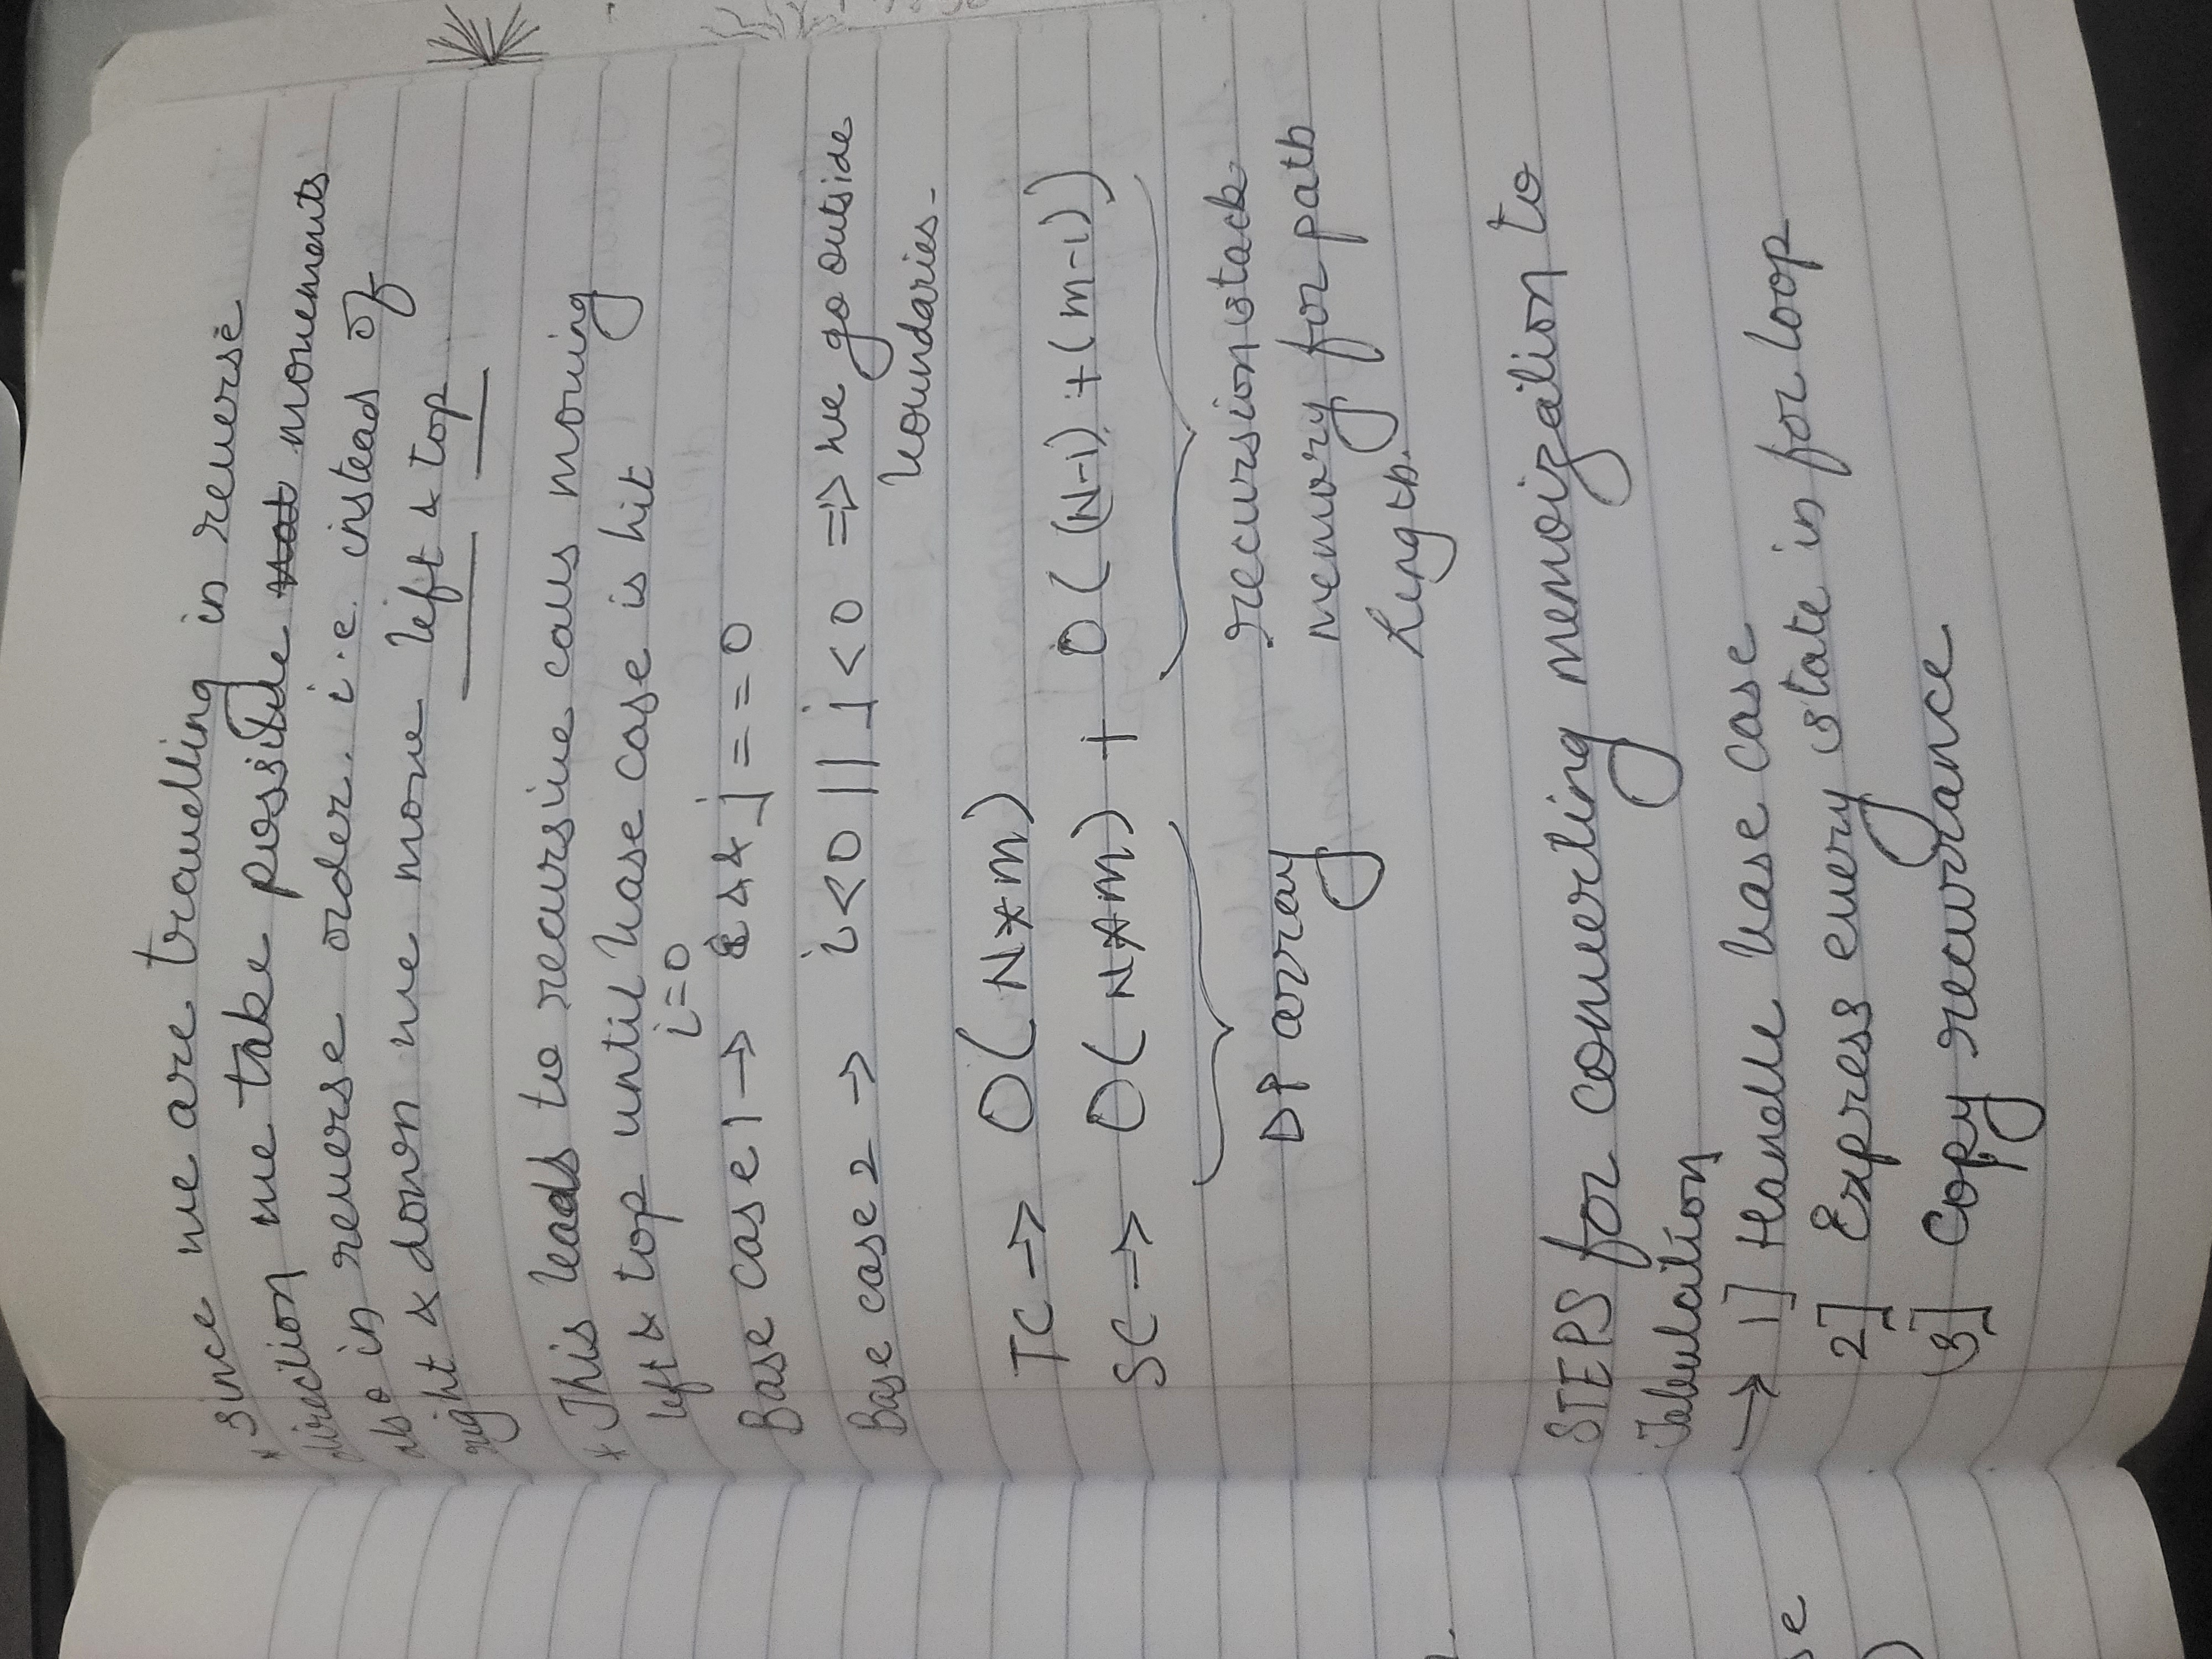 * Since we are travelling in reverse
direction we take possible not movements
also in reverse order. i.e. instead of
right & down we move left & top.
* This leads to recursive calls moving
left & top until base case is hit
i=0
Base case 1 → && j==0
Base case 2 → i<0 || j<0 ⇒ we go outside
boundaries.
TC → O(N*M)
SC → O(N*M) + O((N-1)+(M-1))
DP array
recursion stack
memory for path
length.
STEPS for converting memoization to
Tabulation
→ 1] Handle base case
2] Express every state in for loop
3] Copy recurrance
se
)